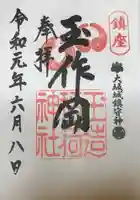 鎮座
大坂城鎮守神
玉作岡
玉造
稲荷
神社
奉拝
令和元年六月八日